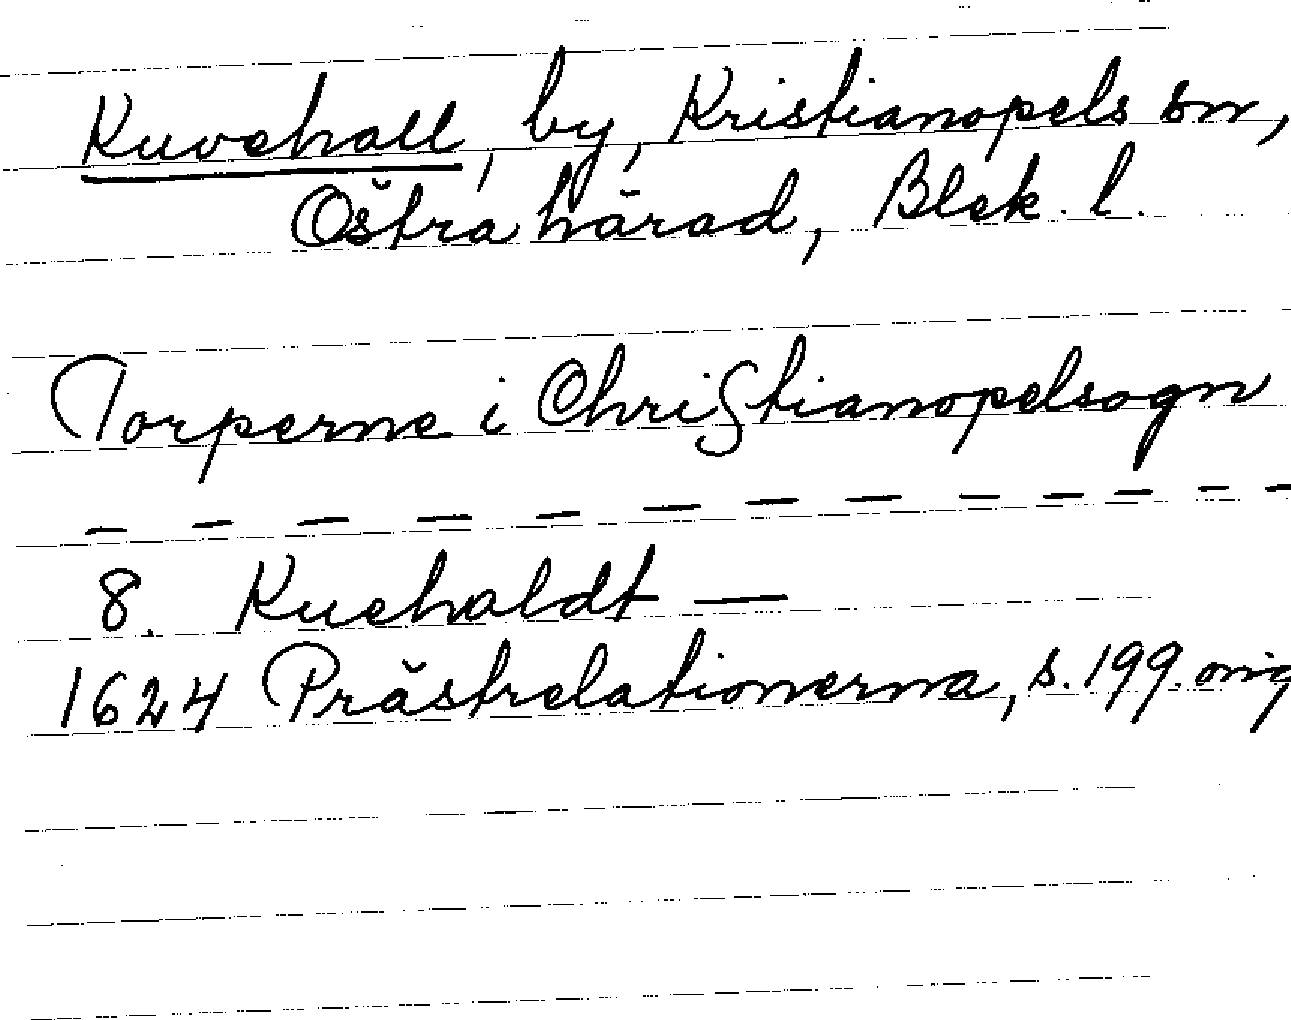 Kuvehall, by, Kristianopels sn,
Östra härad, Blek. l.
Torperne i Christianopelsogn
– – – – – – – – – – – –
8. Kuehaldt —
1624 Prästrelationerna, s. 199. orig